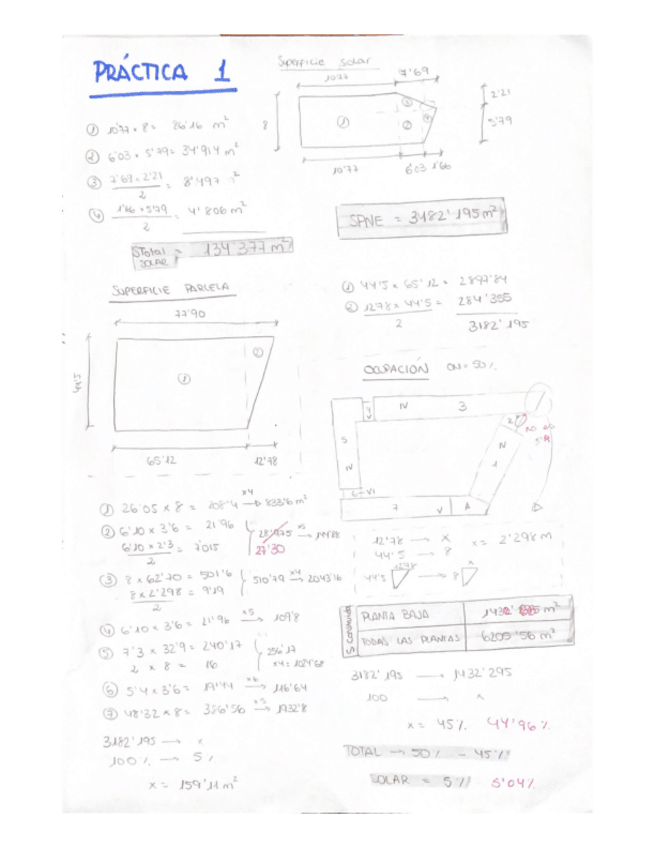 PRÁCTICA 1
Superficie solar
10'77
7'69
8
① ③ ② ④
2'21
5'79
10'77
6'03 1'66
① 10'77 × 8 = 86'16 m²
② 6'03 × 5'79 = 34'914 m²
③ 7'69 × 2'21 = 8'497
2
④ 1'66 × 5'79 = 4'806 m²
2
STotal SOLAR = 134'377 m²
SPNE = 3182'195 m²
SUPERFICIE PARCELA
77'90
44'5
① ②
65'12 12'78
① 44'5 × 65'12 = 2897'84
② 12'78 × 44'5 = 284'355
2
3182'195
OCUPACIÓN ON = 50%
IV 3
5
IV
6 VI
7 V A
IV
1
2
① 26'05 × 8 = 208'4 ×4 → 833'6 m²
② 6'10 × 3'6 = 21'96
6'10 × 2'3 = 7'015
2
28'975 ×5 →
27'30
③ 8 × 62'70 = 501'6
8 × 2'298 = 9'19
2
510'79 ×4 → 2043'16
④ 6'10 × 3'6 = 21'96 ×5 → 109'8
⑤ 7'3 × 32'9 = 240'17
2 × 8 = 16
256'17
×4 = 1024'68
⑥ 5'4 × 3'6 = 19'44 ×6 → 116'64
⑦ 48'32 × 8 = 386'56 ×5 → 1932'8
3182'195 → x
100% → 5%
x = 159'11 m²
12'78 → x
44'5 → 8
x = 2'298 m
12'78
44'5 → 8 x
S. Construida
PLANTA BAJA m²
TODAS LAS PLANTAS 6205'56 m²
3182'195 → 1432'295
100 → x
x = 45% 44'96%
TOTAL → 50% - 45%
SOLAR = 5% 5'04%